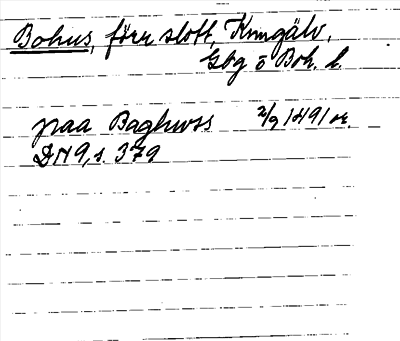 Bohus, förr slott, Kungälv,
Gbg o Boh. l.
paa Baghuss 2/9 1491 or.
DN 9, s. 379